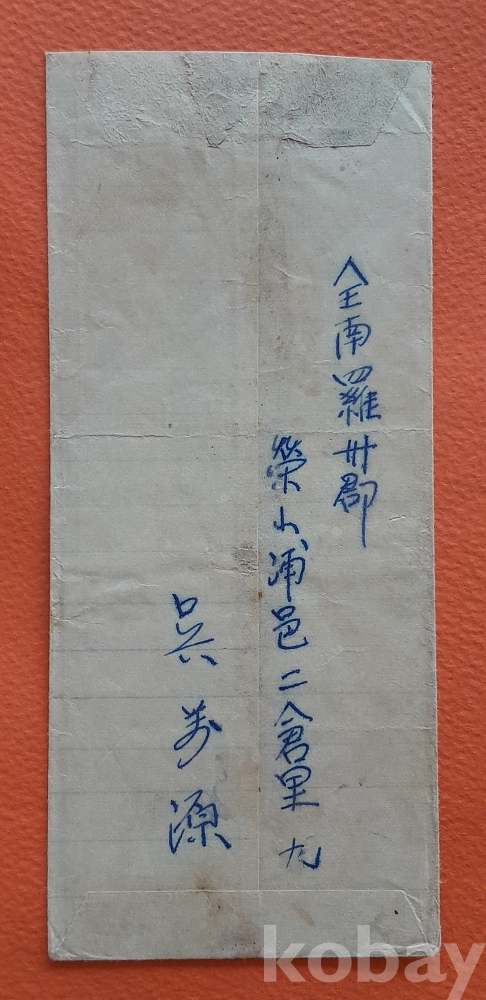 全南羅州郡
榮山浦邑二倉里 九
吳萬源
kobay